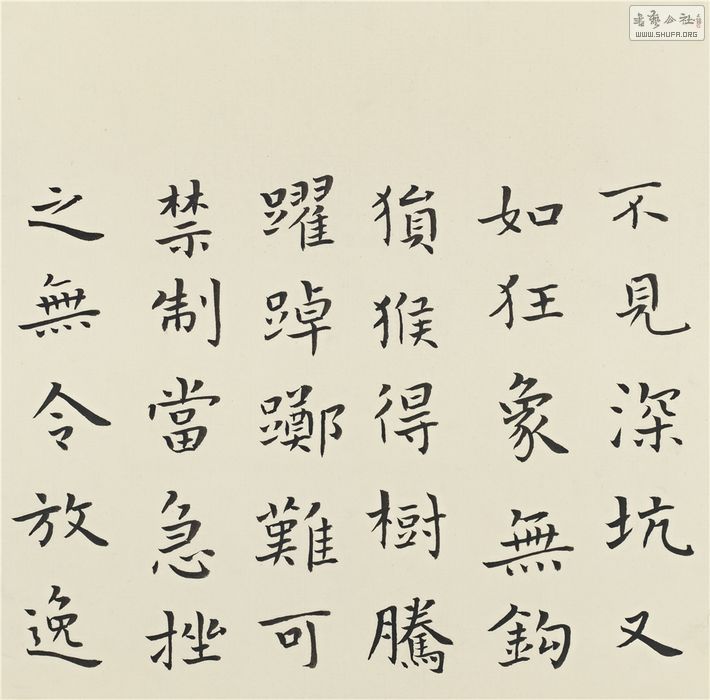 不見深坑又
如狂象無鉤
猿猴得樹騰
躍踔躑難可
禁制當急挫
之無令放逸
書藝公社
WWW.SHUFA.ORG